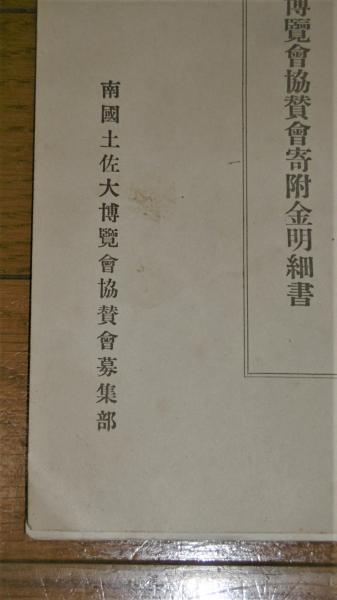 博覽會協贊會寄附金明細書
南國土佐大博覽會協贊會募集部